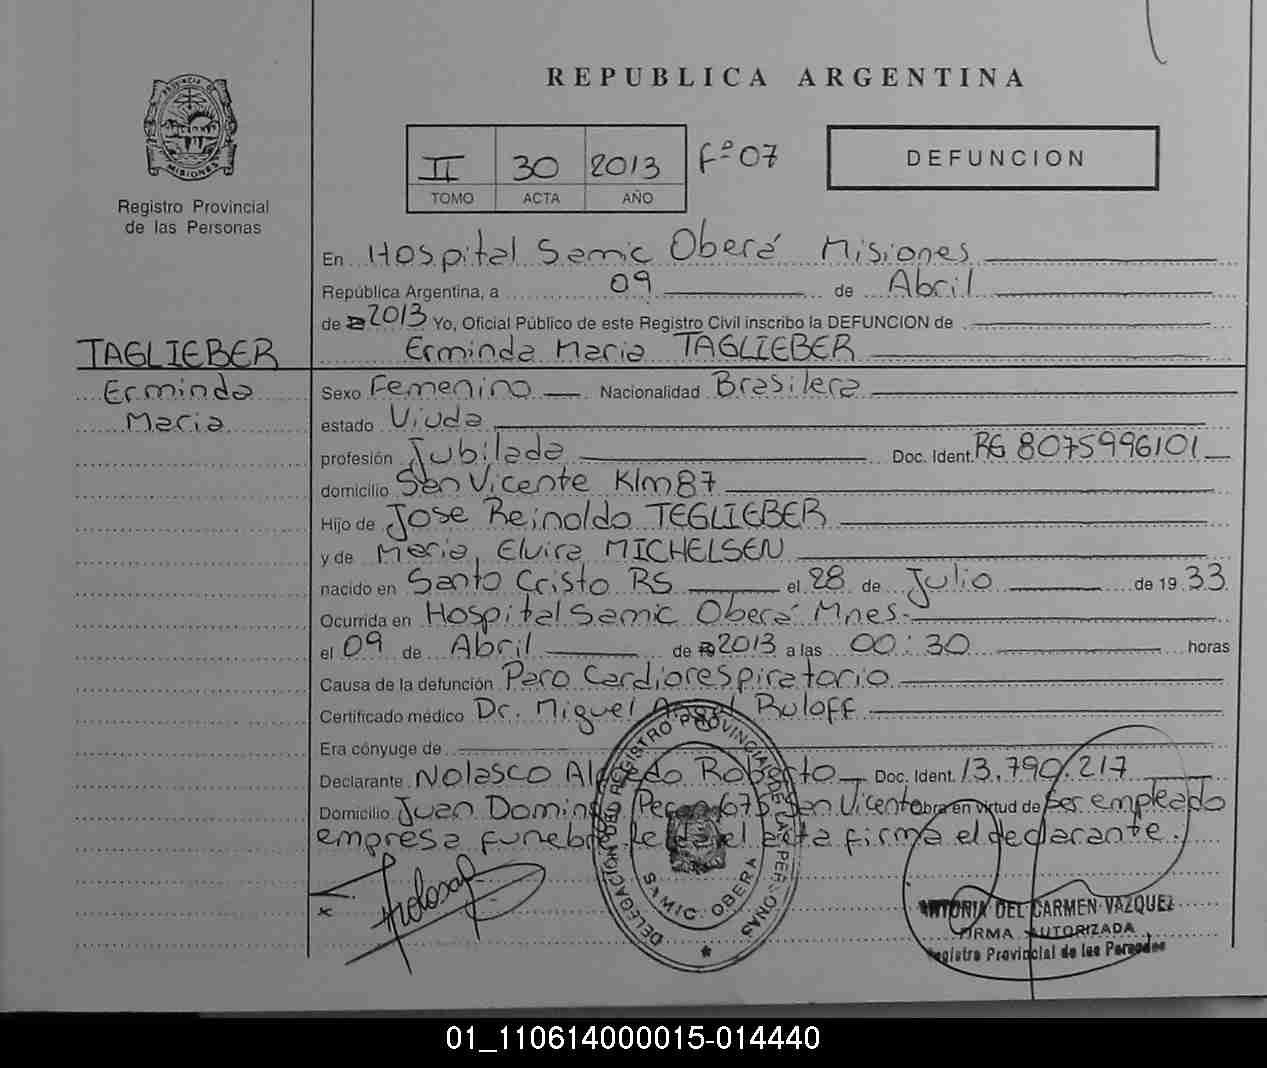 REPUBLICA ARGENTINA
PROVINCIA DE
MISIONES
Registro Provincial
de las Personas
II 30 2013 Fº 07
TOMO ACTA AÑO
DEFUNCION
En Hospital Samic Oberá Misiones
República Argentina, a 09 de Abril
de 2013 Yo, Oficial Público de este Registro Civil inscribo la DEFUNCION de
TAGLIEBER
Erminda Maria TAGLIEBER
Erminda
Maria
Sexo Femenino Nacionalidad Brasilera
estado Viuda
profesión Jubilada Doc. Ident. RG 8075996101
domicilio San Vicente Klm 87
Hijo de Jose Reinoldo TEGLIEBER
y de Maria, Elvira MICHELSEN
nacido en Santo Cristo RS el 28 de Julio de 19 33
Ocurrida en Hospital Samic Oberá Mnes.
el 09 de Abril de 2013 a las 00:30 horas
Causa de la defunción Paro Cardiorespiratorio
Certificado médico Dr. Miguel Angel Ruloff
Era cónyuge de
Declarante Nolasco Alfredo Roberto Doc. Ident. 13.790.217
Domicilio Juan Domingo Peron 675 San Vicente obra en virtud de Ser empleado
empresa funebre. Leida el acta firma el declarante.
DELEGACION DEL REGISTRO PROVINCIAL DE LAS PERSONAS
SAMIC. OBERA
ANTONIA DEL CARMEN VAZQUEZ
FIRMA AUTORIZADA
Registro Provincial de las Personas
01_110614000015-014440